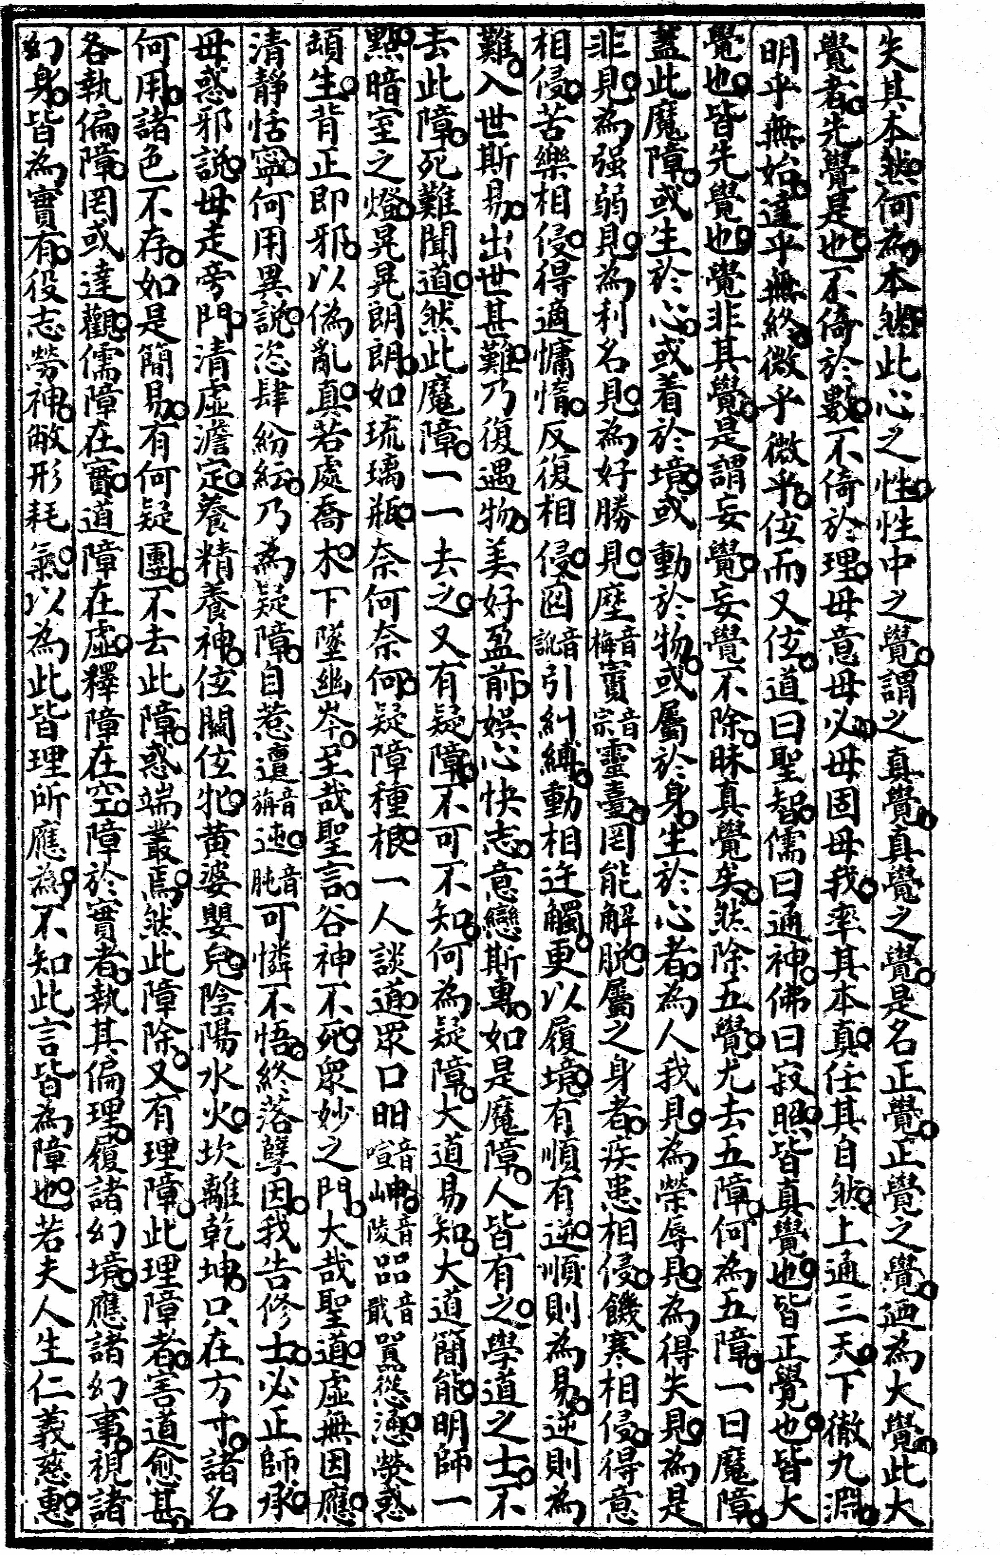 失其本然何為本然此心之性性中之覺謂之真覺真覺之覺是名正覺正覺之覺廼為大覺此大
覺者先覺是也不倚於數不倚於理毋意毋必毋固毋我率其本真任其自然上通三天下徹九淵
明乎無始達乎無終微乎微乎位而又位道曰聖智儒曰通神佛曰寂照皆真覺也皆正覺也皆大
覺也皆先覺也覺非其覺是謂妄覺妄覺不除昧真覺矣然除五覺尤去五障何為五障一曰魔障
蓋此魔障或生於心或着於境或動於物或屬於身生於心者為人我見為榮辱見為得失見為是
非見為强弱見為利名見為好勝見塺音梅賨音宗靈臺罔能解脫屬之身者疾患相侵饑寒相侵得意
相侵苦樂相侵得適慵惰反復相侵囮音訛引糾縛動相迕觸更以履境有順有逆順則為易逆則為
難入世斯易出世甚難乃復遇物美好盈前娛心快志意戀斯專如是魔障人皆有之學道之士不
去此障死難聞道然此魔障一一去之又有疑障不可不知何為疑障大道易知大道簡能明師一
點暗室之燈晃晃朗朗如琉璃瓶奈何奈何疑障種根一人談道眾口吅音喧㗊音戢罵慫慂熒惑
頡生背正即邪以偽亂真若處喬木下墜幽岑至哉聖言谷神不死眾妙之門大哉聖道虛無因應
清靜恬寧何用異說恣肆紛紜乃為疑障自惹邅音旃迍音肫可憐不悟終落孽因我告修士必正師承
毋惑邪說毋走旁門清虛澹定養精養神位關位牝黃婆嬰兒陰陽水火坎離乾坤只在方寸諸名
何用諸色不存如是簡易有何疑團不去此障惑端叢焉然此障除又有理障此理障者害道愈甚
各執偏障罔或達觀儒障在實道障在虛釋障在空障於實者執其偏理履諸幻境應諸幻事視諸
幻身皆為實有役志勞神敝形耗氣以為此皆理所應為不知此言皆為障也若夫人生仁義慈惠